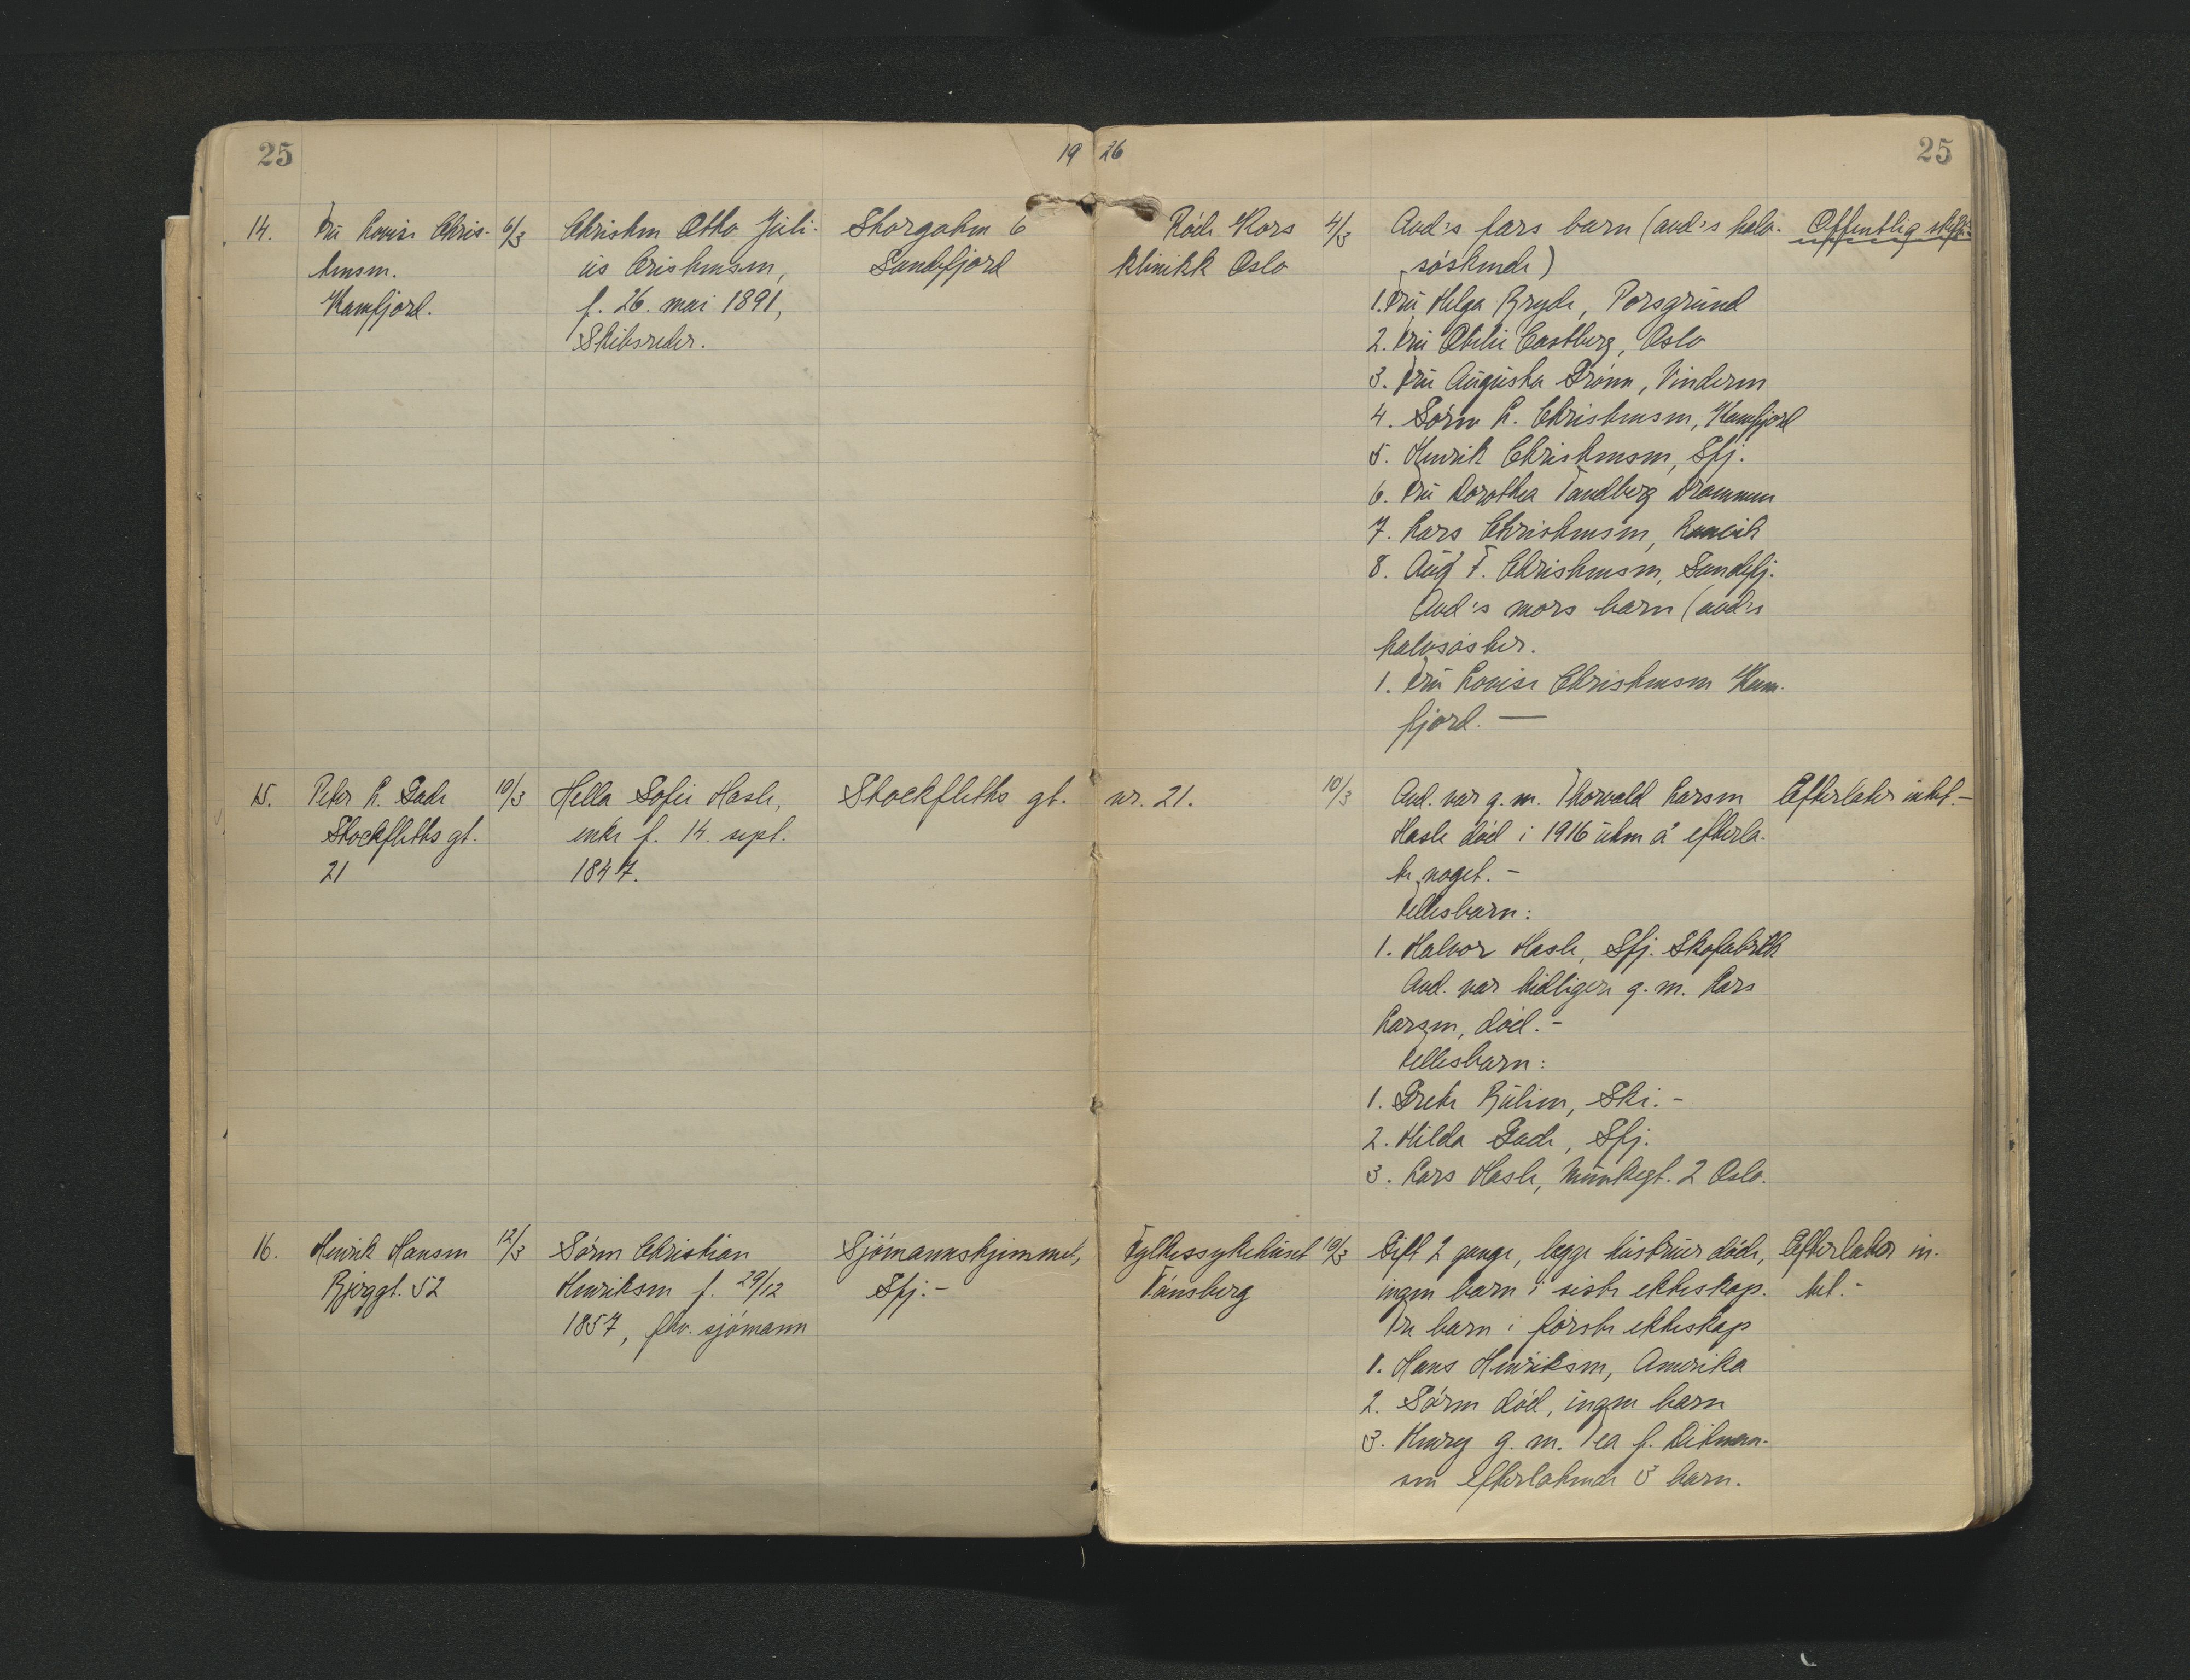 25
19 26
25
14.
Fru Lovise Chris-
tensen.
Kamfjord.
6/3
Christen Otto Juli-
us Cristensen,
f. 26. mai 1891,
Skibsreder.
Storgaten 6
Sandefjord
Röde Kors
klinikk Oslo
4/3
Avd:s fars barn (avd:s halv-
söskende)
1. Fru Helga Bryde, Porsgrund
2. Fru Otilie Castberg, Oslo
3. Fru Augusta Grönn, Vinderen
4. Sören L. Christensen, Kamfjord
5. Henrik Christensen, Sfj.
6. Fru Dorothea Tandberg Drammen
7. Lars Christensen,
8. Aug F. Christensen, Sandefj.
Avd:s mors barn (avd:s
halvsöster.
1. Fru Lovise Christensen Kam-
fjord. —
Offentlig skifte
15.
Peter L. Gade
Stockfleths gt.
21
10/3
Hella Sofie Hasle,
enke f. 14. sept.
1847.
Stockfleths gt.
nr. 21.
10/3
Avd. var g. m. Thorvald Larsen
Hasle död i 1916 uten å efterla-
te noget. -
Fellesbarn:
1. Halvor Hasle, Sfj. Skofabrikk
Avd. var tidligere g. m. Lars
Larsen, död. -
Fellesbarn:
1. Grete Bulien, Ski. -
2. Hilda Gade, Sfj.
3. Lars Hasle, Munkegt. 2 Oslo.
Efterlater intet. -
16.
Henrik Hansen
Bjerggt. 52
12/3
Sören Christian
Henriksen f. 29/12
1857, fhv. sjömann
Sjömannshjemmet,
Sfj. -
Fylkessykehuset
Tönsberg
10/3
Gift 2 gange, begge hustruer döde,
ingen barn i siste ekteskap.
Tre barn i förste ekteskap
1. Hans Henriksen, Amerika
2. Sören död, ingen barn
3. Henry g. m. Tea f. Ditman-
sen efterlatende 3 barn.
Efterlater in-
tet. -